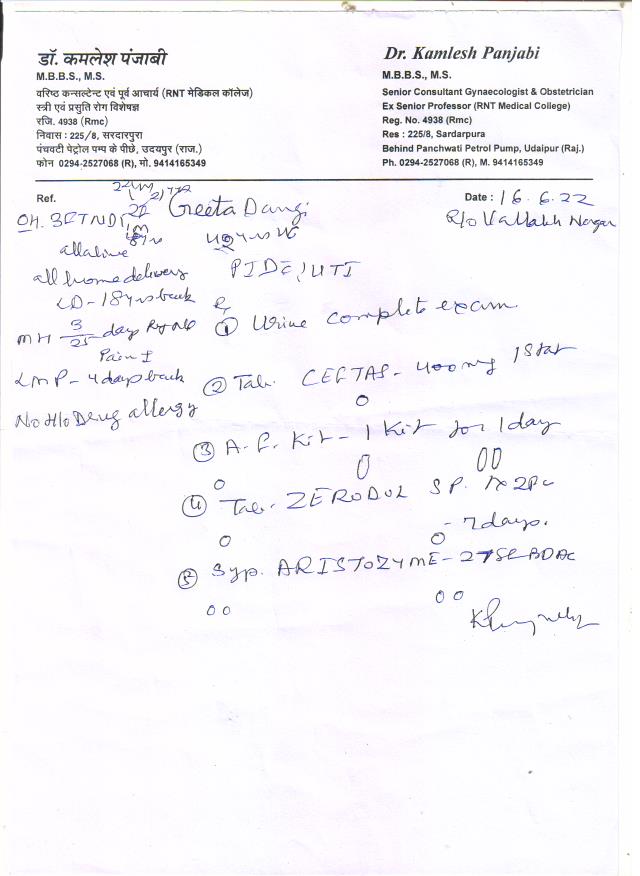 डॉ. कमलेश पंजाबी
M.B.B.S., M.S.
वरिष्ठ कन्सल्टेन्ट एवं पूर्व आचार्य (RNT मेडिकल कॉलेज)
स्त्री एवं प्रसुति रोग विशेषज्ञ
रजि. 4938 (Rmc)
निवास : 225/8, सरदारपुरा
पंचवटी पेट्रोल पम्प के पीछे, उदयपुर (राज.)
फोन 0294-2527068 (R), मो. 9414165349
Dr. Kamlesh Panjabi
M.B.B.S., M.S.
Senior Consultant Gynaecologist & Obstetrician
Ex Senior Professor (RNT Medical College)
Reg. No. 4938 (Rmc)
Res : 225/8, Sardarpura
Behind Panchwati Petrol Pump, Udaipur (Raj.)
Ph. 0294-2527068 (R), M. 9414165349
Ref.
Date : 16.6.22
Geeta Dangi
R/o Vallabh Nagar
OH. 3FTND
all alive
all home delivery
LD - 18 yrs back
MH 3/25 days
Pain ±
LMP - 4 days back
No H/o Drug allergy
PID c̄ UTI
① Urine complete exam.
② Tab. CEFTAS - 400 mg 1 Stat
③ A.F. Kit - 1 Kit for 1 day
④ Tab. ZERODOL SP.
- 7 days.
⑤ Syp. ARISTOZYME - 2TSF BDAC